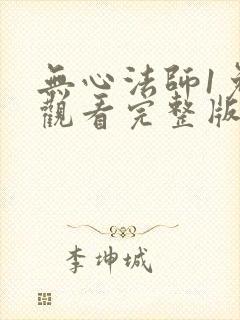 無心法師1免
觀看完整版
李坤城